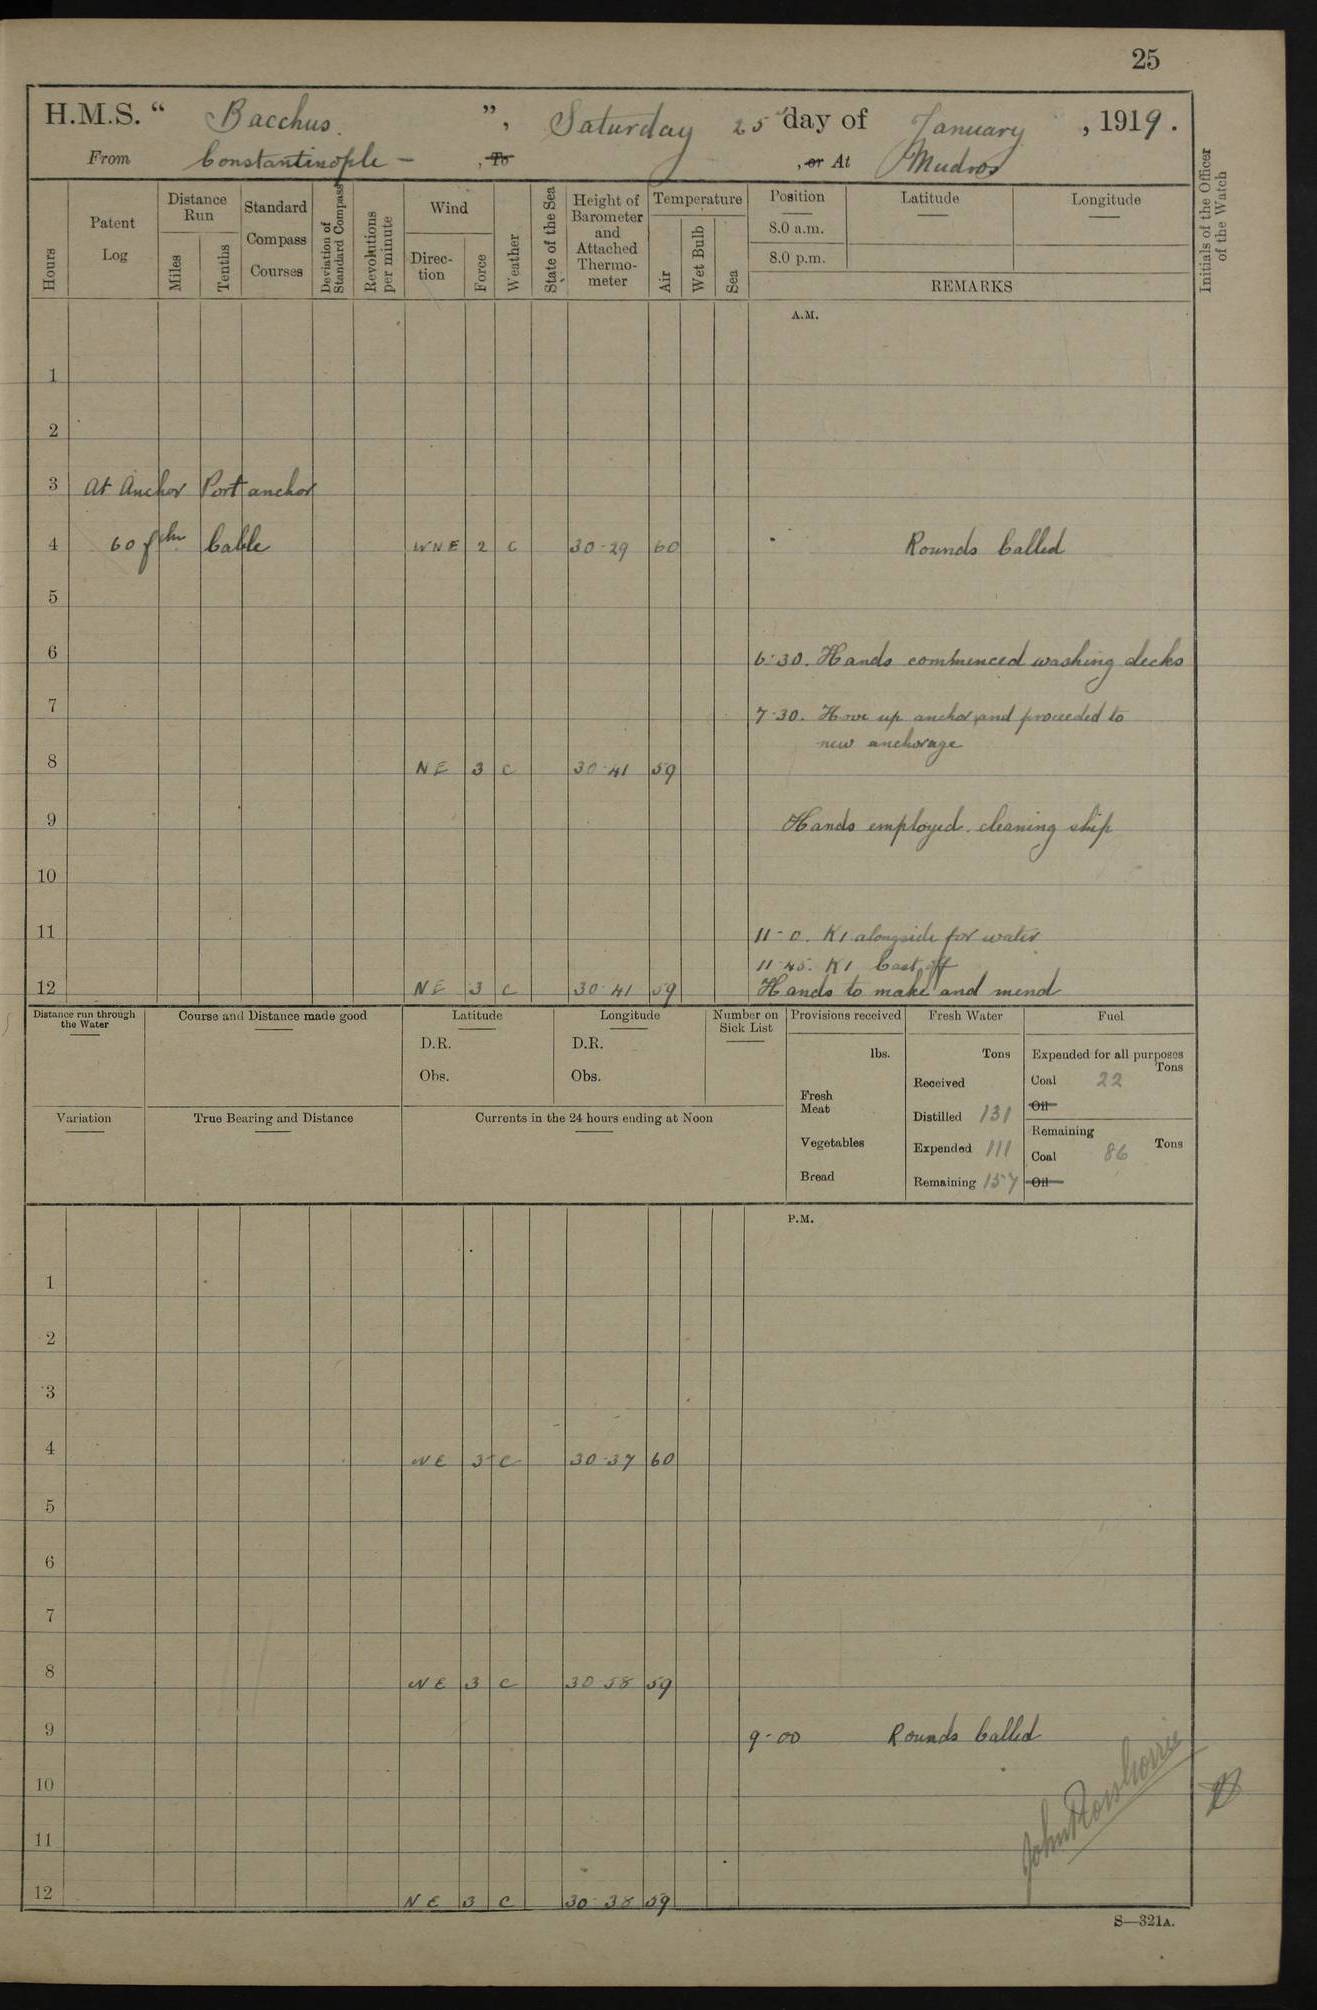 25
H.M.S. “ Bacchus. ”, Saturday 25 day of January, 1919.
From Constantinople - , To , or At Mudros
Hours
Patent Log
Distance Run
Miles
Tenths
Standard Compass Courses
Deviation of Standard Compass
Revolutions per minute
Wind
Direc-tion
Force
Weather
State of the Sea
Height of Barometer and Attached Thermo-meter
Temperature
Air
Wet Bulb
Sea
Position
8.0 a.m.
8.0 p.m.
Latitude
Longitude
REMARKS
Initials of the Officer of the Watch
A.M.
1
2
3 At Anchor Port anchor
4 60 fthm Cable WNE 2 C 30-29 60 Rounds Called
5
6 6-30. Hands commenced washing decks
7 7-30. Hove up anchor and proceeded to
new anchorage
8 NE 3 C 30-41 59
9 Hands employed cleaning ship
10
11 11-0. K1 alongside for water
11-45. K1 Cast off
12 NE 3 C 30-41 59 Hands to make and mend
Distance run through the Water
Course and Distance made good
Latitude
D.R.
Obs.
Longitude
D.R.
Obs.
Number on Sick List
Provisions received
lbs.
Fresh Meat
Vegetables
Bread
Fresh Water
Tons
Received
Distilled 131
Expended 111
Remaining 157
Fuel
Expended for all purposes
Tons
Coal 22
Oil
Remaining
Tons
Coal 86
Oil
Variation
True Bearing and Distance
Currents in the 24 hours ending at Noon
P.M.
1
2
3
4 NE 3 C 30-37 60
5
6
7
8 NE 3 C 30 58 59
9 9-00 Rounds Called
10
11
12 NE 3 C 30-38 59
John
S—321A.